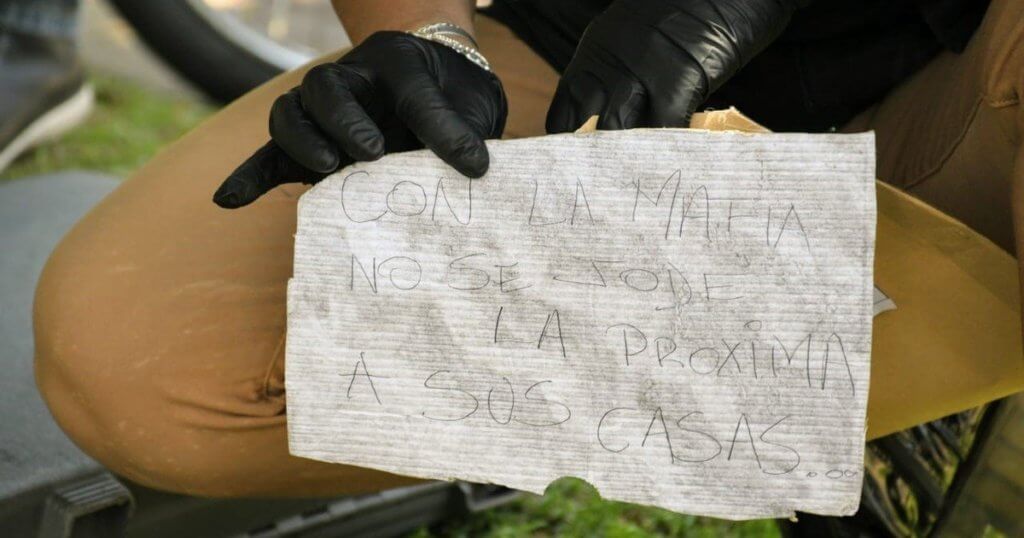 CON LA MAFIA
NO SE JODE
LA PROXIMA
A SUS CASAS...